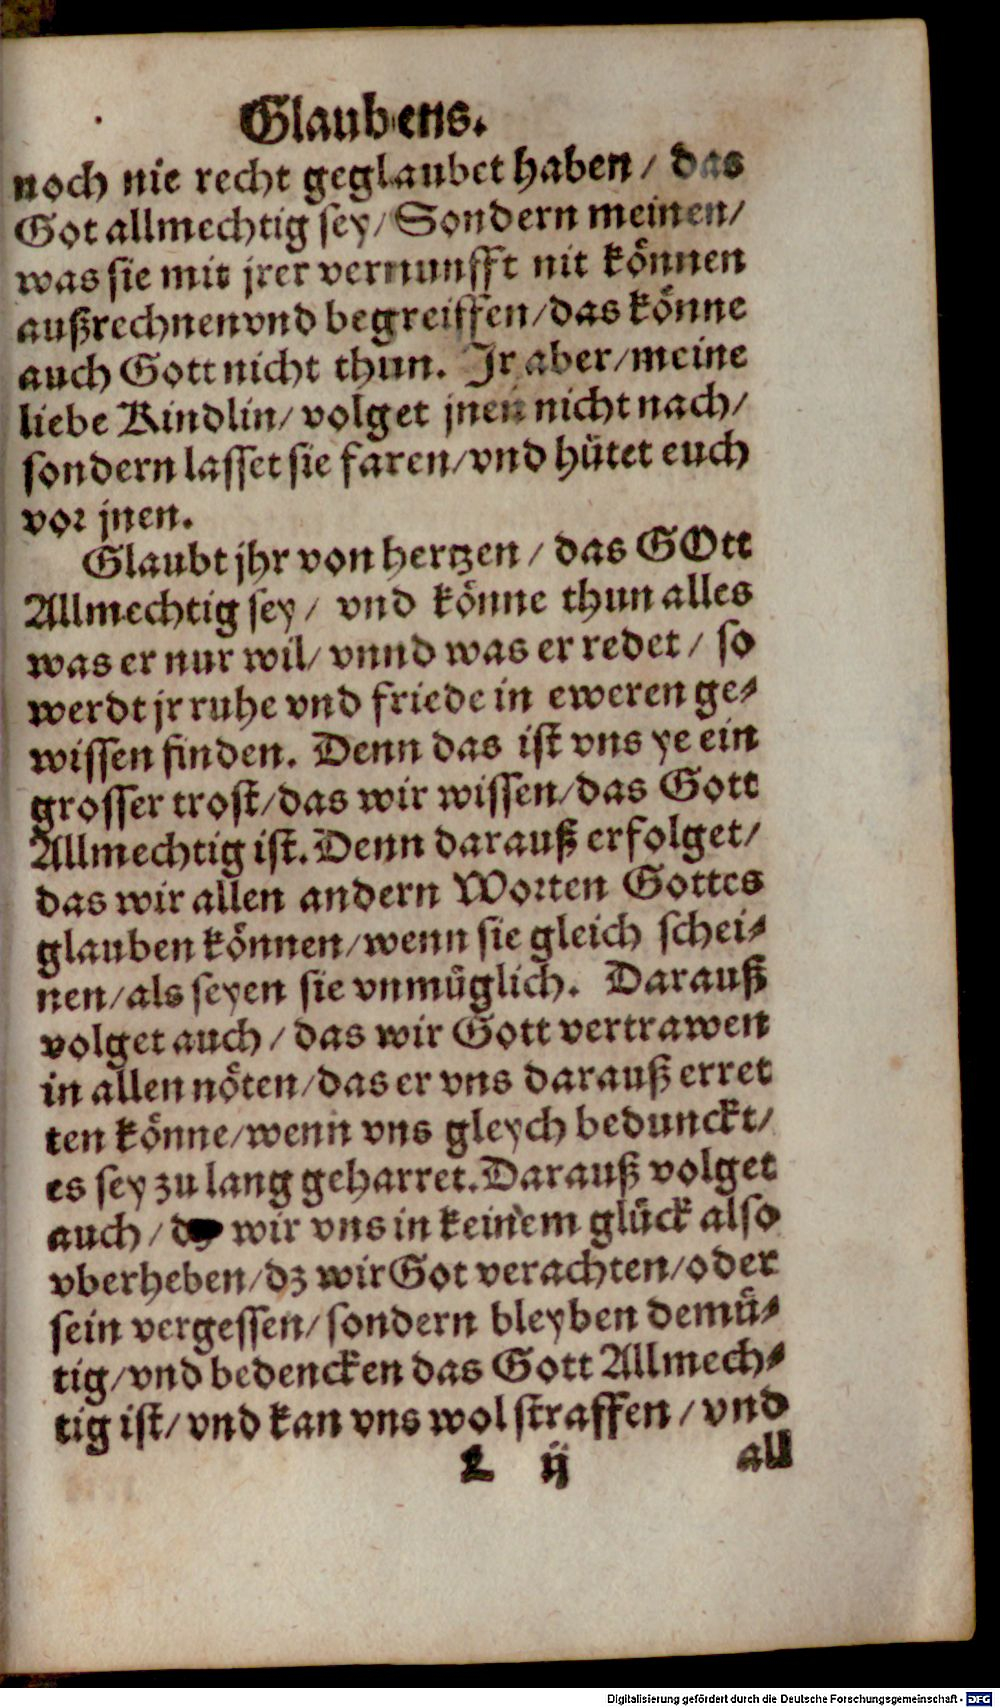 Glaubens.
noch nie recht geglaubet haben / das
Got allmechtig sey / Sondern meinen /
was sie mit jrer vernunfft nit können
außrechnen vnd begreiffen / das könne
auch Gott nicht thun. Jr aber / meine
liebe Kindlin / volget jnen nicht nach /
sondern lasset sie faren / vnd hütet euch
vor jnen.
Glaubt jhr von hertzen / das GOtt
Allmechtig sey / vnd könne thun alles
was er nur wil / vnnd was er redet / so
werdt jr ruhe vnd friede in eweren ge-
wissen finden. Denn das ist vns ye ein
grosser trost / das wir wissen / das Gott
Allmechtig ist. Denn darauß erfolget /
das wir allen andern Worten Gottes
glauben können / wenn sie gleich schei-
nen / als seyen sie vnmüglich. Darauß
volget auch / das wir Gott vertrawen
in allen nöten / das er vns darauß erret
ten könne / wenn vns gleych bedunckt /
es sey zu lang geharret. Darauß volget
auch / dz wir vns in keinem glück also
vberheben / dz wir Got verachten / oder
sein vergessen / sondern bleyben demü-
tig / vnd bedencken das Gott Allmech-
tig ist / vnd kan vns wol straffen / vnd
L ij all
Digitalisierung gefördert durch die Deutsche Forschungsgemeinschaft - DFG